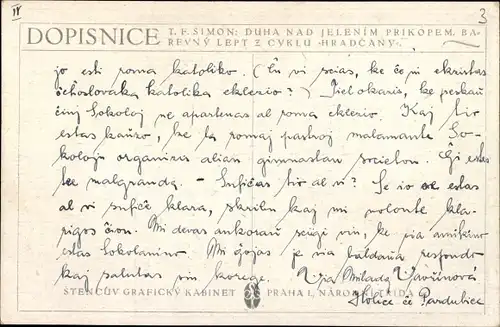 IV
3
DOPISNICE T. F. ŠIMON: DUHA NAD JELENÍM PŘÍKOPEM, BA-
REVNÝ LEPT Z CYKLU „HRADČANY“.
jo esti roma katoliko. (Ĉu vi scias, ke ĉe ni ekzistas
ĉeĥoslovaka katolika eklezio?) Tiel okazis, ke
ĉiuj Sokoloj ne apartenas al roma eklezio. Kaj tio
estas kaŭzo, ke la romaj pastroj malamante So-
kolojn organizis alian gimnastan societon. Ĝi estas
tre malgranda. - Sufiĉas tio al vi? Se io ne estas
al vi sufiĉe klara, skribu kaj mi volonte kla-
rigos ĉion. Mi devas ankoraŭ sciigi vin, ke via amikino
estas Sokolanino. Mi ĝojas je via baldaŭa respondo
kaj salutas vin kore. Via Milada Vavřinová
STENCŮV GRAFICKÝ KABINET PRAHA I., NÁRODNÍ TŘÍDA
Holice ĉe Pardubice